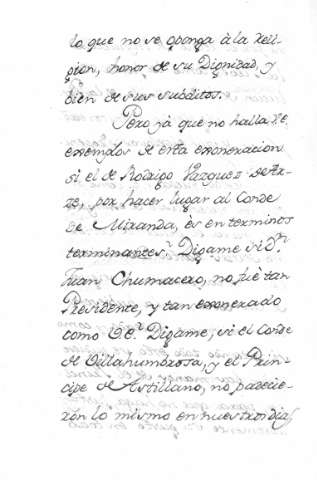 lo que no se oponga à la Reli-
gion, honor de su Dignidad, y
bien de sus subditos.
Pero yà que no halla V.E.
exemplos de esta exoneracion
si el de Rodrigo Vazquez de Ar-
ze, por hacer lugar al Conde
de Miranda, és en terminos
terminantes. Digame si D.n
Juan Chumacero, no fuè tan
Presidente, y tan exonerado
como V.E.? Digame, si el Conde
de Villahumbrosa, y el Prin-
cipe de Astillano, no padecie-
ron lo mismo en nuestros dias